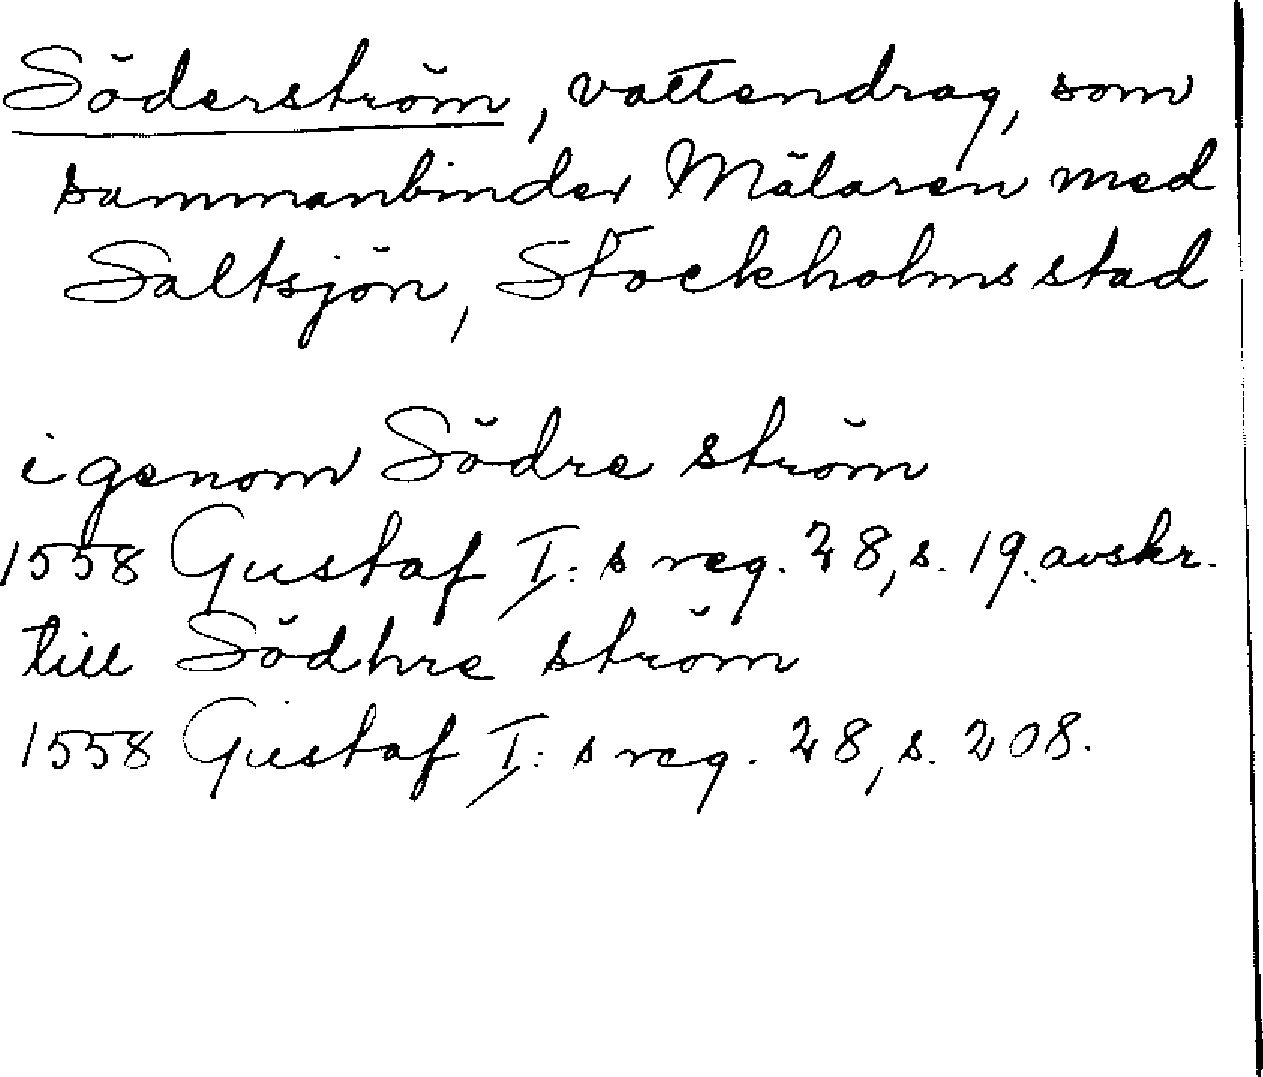 Söderström, vattendrag, som
sammanbinder Mälaren med
Saltsjön, Stockholms stad
igenom Södre ström
1558 Gustaf I: s reg. 28, s. 19. avskr.
till Södhre ström
1558 Gustaf I: s reg. 28, s. 208.